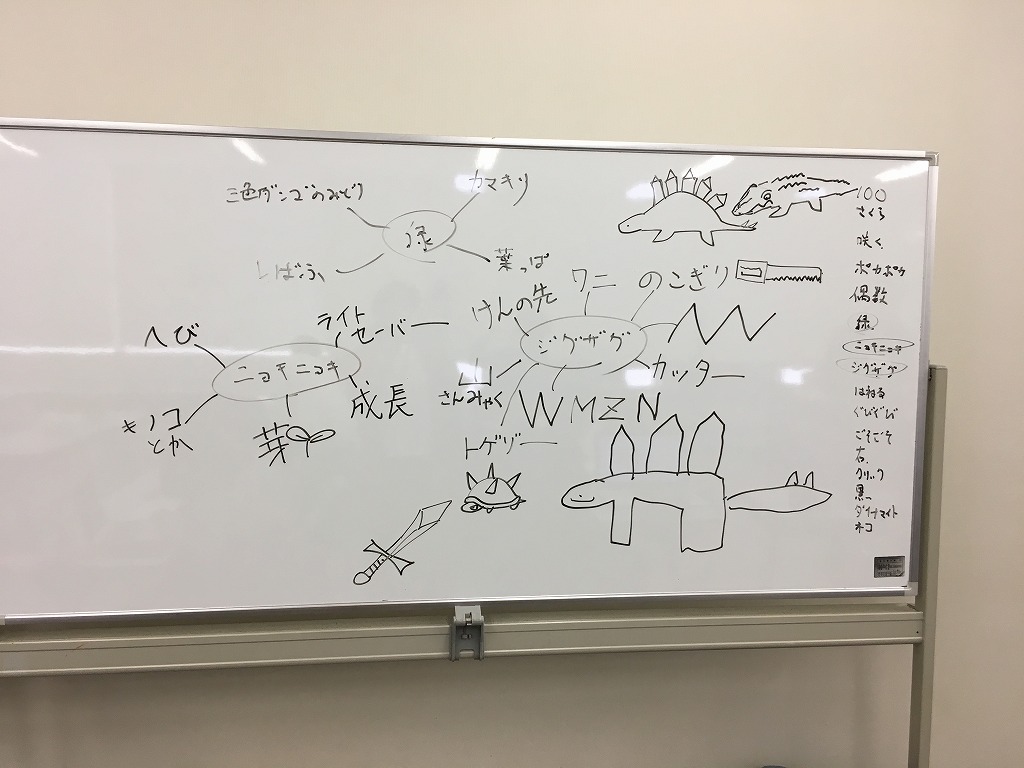 三色ダンゴのみどり
カマキリ
緑
しばふ
葉っぱ
へび
ライト
セーバー
ニョキニョキ
キノコ
とか
芽
成長
けんの先
ワニ
のこぎり
ジグザグ
さんみゃく
カッター
WMZN
トゲゾー
100
さくら
咲く
ポカポカ
偶数
緑
ニョキニョキ
ジグザグ
はねる
ぐびぐび
ごそごそ
右
クリック
黒
ダイナマイト
ネコ